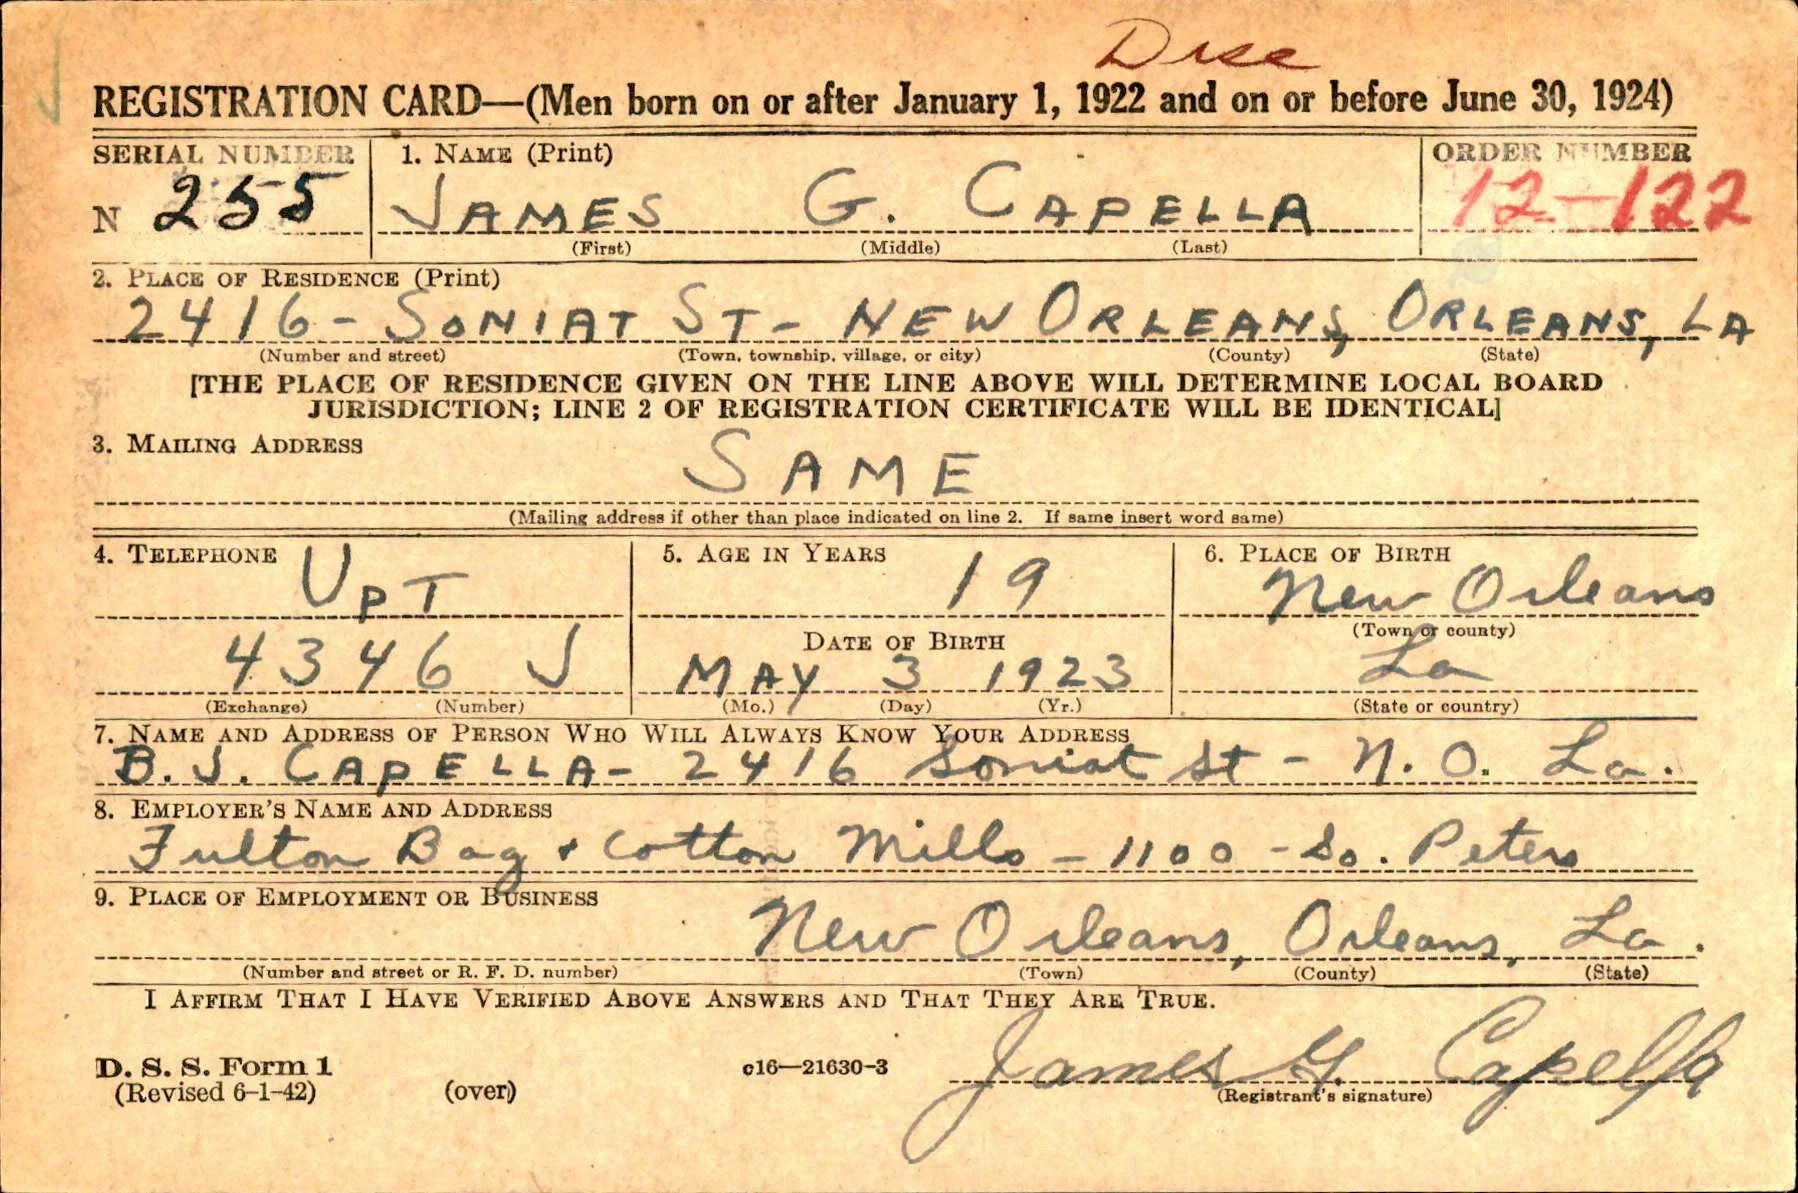 Disc
REGISTRATION CARD—(Men born on or after January 1, 1922 and on or before June 30, 1924)
SERIAL NUMBER 1. NAME (Print) ORDER NUMBER
N 255 JAMES G. CAPELLA 12-122
(First) (Middle) (Last)
2. PLACE OF RESIDENCE (Print)
2416 - SONIAT ST - NEW ORLEANS, ORLEANS, LA
(Number and street) (Town, township, village, or city) (County) (State)
[THE PLACE OF RESIDENCE GIVEN ON THE LINE ABOVE WILL DETERMINE LOCAL BOARD
JURISDICTION; LINE 2 OF REGISTRATION CERTIFICATE WILL BE IDENTICAL]
3. MAILING ADDRESS
SAME
(Mailing address if other than place indicated on line 2. If same insert word same)
4. TELEPHONE 5. AGE IN YEARS 6. PLACE OF BIRTH
UPT 19 New Orleans
DATE OF BIRTH (Town or county)
4346 J MAY 3 1923 La
(Exchange) (Number) (Mo.) (Day) (Yr.) (State or country)
7. NAME AND ADDRESS OF PERSON WHO WILL ALWAYS KNOW YOUR ADDRESS
B. J. CAPELLA - 2416 Soniat St - N. O. La.
8. EMPLOYER'S NAME AND ADDRESS
Fulton Bag + Cotton Mills - 1100 - So. Peters
9. PLACE OF EMPLOYMENT OR BUSINESS
New Orleans, Orleans, La.
(Number and street or R. F. D. number) (Town) (County) (State)
I AFFIRM THAT I HAVE VERIFIED ABOVE ANSWERS AND THAT THEY ARE TRUE.
D. S. S. Form 1 c16—21630-3 James G. Capella
(Revised 6-1-42) (over) (Registrant's signature)